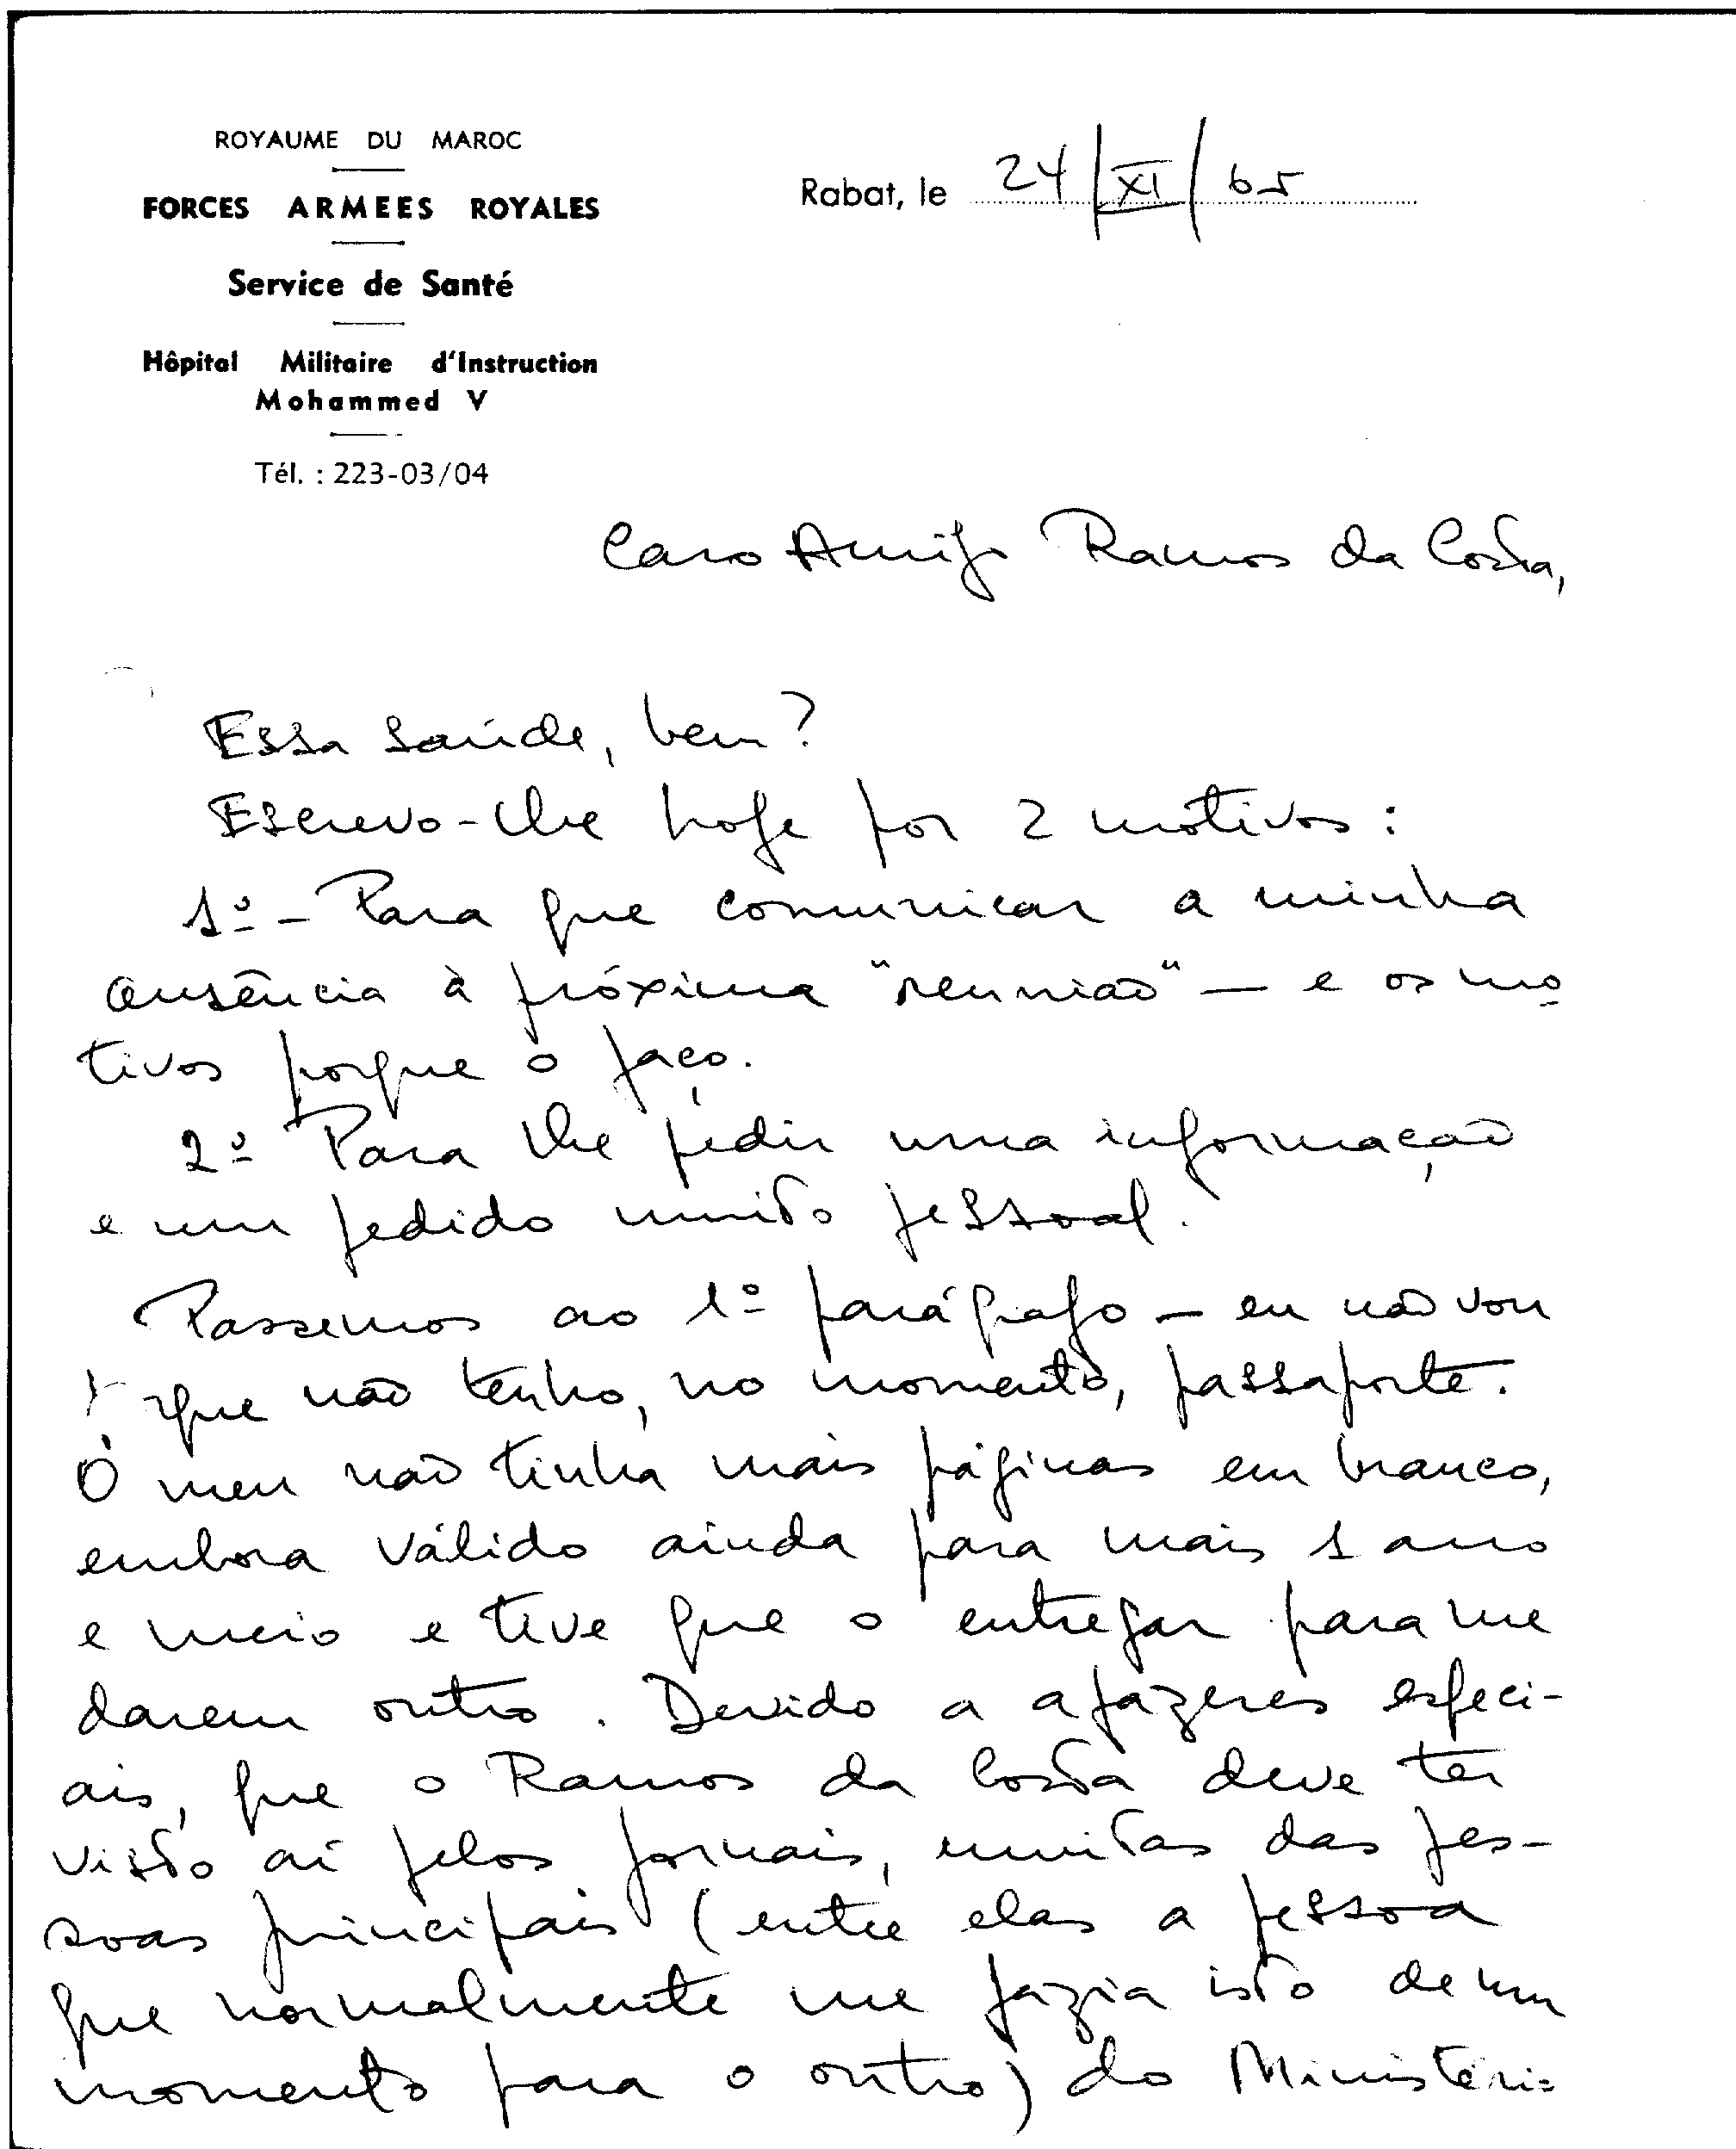 ROYAUME DU MAROC
FORCES ARMEES ROYALES
Service de Santé
Hôpital Militaire d'Instruction
Mohammed V
Tél. : 223-03/04
Rabat, le 24/XI/65
Caro Amigo Ramos da Costa,
Essa saúde, bem?
Escrevo-lhe hoje por 2 motivos:
1º - Para que comunicar a minha
ausência à próxima "reunião" - e os mo
tivos porque o faço.
2º Para lhe pedir uma informação
e um pedido muito pessoal.
Passemos ao 1º parágrafo - eu não vou
que não tenho, no momento, passaporte.
O meu não tinha mais páginas em branco,
embora válido ainda para mais 1 ano
e meio e tive que o entregar para me
darem outro. Devido a afazeres especi-
ais, que o Ramos da Costa deve ter
visto aí pelos jornais, muitas das pes-
soas principais (entre elas a pessoa
que normalmente me fazia isto de um
momento para o outro) do Ministéri=